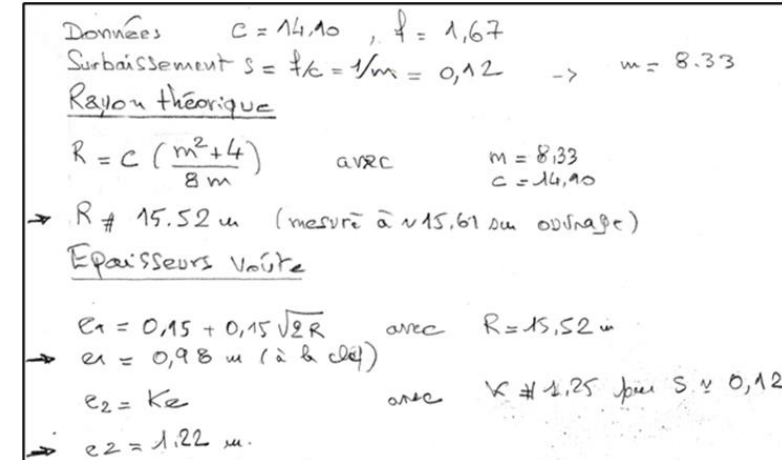 Données C = 14,10 , f = 1,67
Surbaissement S = f/c = 1/m = 0,12 -> m = 8.33
Rayon théorique
R = C (m²+4 / 8m) avec m = 8,33
C = 14,10
→ R # 15.52 m (mesuré à ~15,61 sur ouvrage)
Epaisseurs Voûte
e1 = 0,15 + 0,15 √2R avec R = 15,52 m
→ e1 = 0,98 m (à la clef)
e2 = Ke avec K # 1,25 pour S ~ 0,12
→ e2 = 1.22 m.